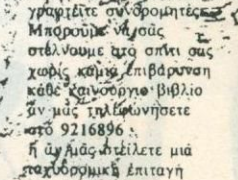 γραφτεῖτε συνδρομητές
Μποροῦμε νά σᾶς
στέλνουμε στό σπίτι σας
χωρίς καμιά ἐπιβάρυνση
κάθε καινούργιο βιβλίο
ἄν μᾶς τηλεφωνήσετε
στό 9216896
ἤ ἄν μᾶς στείλετε μιά
ταχυδρομική ἐπιταγή